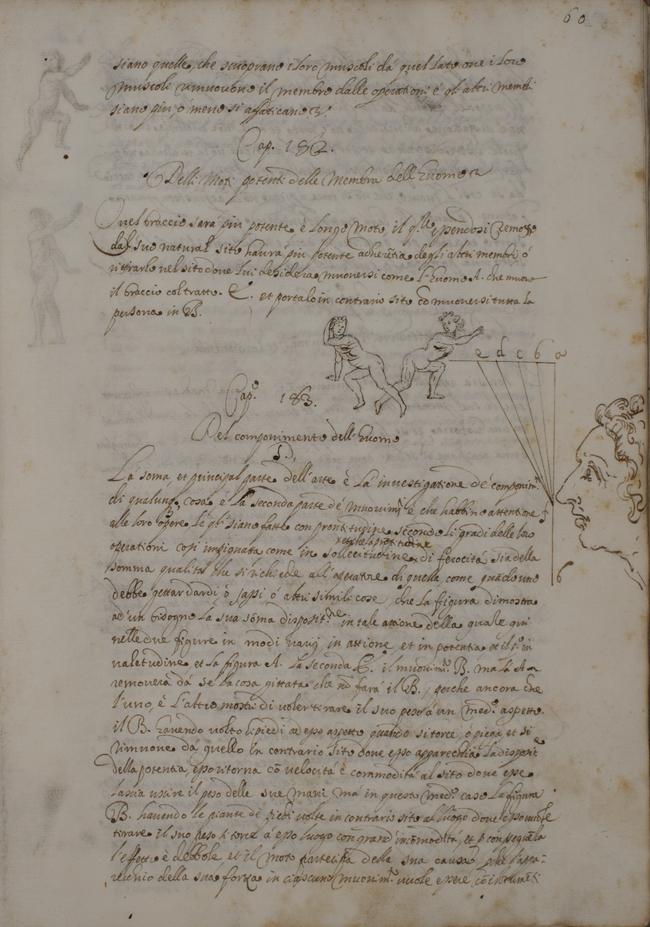 60
siano quelle, che scuoprano i loro muscoli da quel lato ove i loro
muscoli rimuovono il membro dalle operationi e gl'altri membri
siano più o meno si affaticano
Cap. 182.
Delli Moti potenti delle Membra dell'Huomo
Quel braccio sarà piu potente e longo moto il q.le essendosi remosso
dal suo natural sito haurà piu potente adherentia degli altri membri ó
ritirarlo nel sito dove lui desidera muoversi come l'huomo A. che muove
il braccio col tratto. C. et portalo in contrario sito có muoversi tutta la
persona in B.
e d c b a
Cap.º 183.
Del componimento dell'Huomo
La soma et principal parte dell'arte è la investigatione de componim.ti
di qualunq. cosa e la seconda parte de' movim.ti è che habbino attentione
alle loro opere le q.li siano fatte con prontitudine secondo li gradi delle loro
operationi così in come in sollecitudine di ferocità sia della
somma qualità che si richiede all'operatore di quella come quando uno
debbe gettar dardi o sassi ó altri simili cose, che la figura dimostra
la sua sóma disposit.ne in tale attione della quale qui
nelle due figure in modi varij in attione, et in potentia et il p.º in
valetudine et la figura A. la seconda C. il movim.to B. ma l' A
removerà da se la cosa gittata che nó farà il B, perche ancora che
l'uno, e l'altro mostri di voler tirare il suo peso á un med.º aspetto
il B. havendo volto li piedi ad esso aspetto quando si torce, o piega et si
rimuove da quello in contrario sito dove esso apparecchia la dispositione
della potentia, esso ritorna có velocità e commodità al sito dove esso
lascia uscire il peso delle sue mani ma in questo med.º caso la figura
B. havendo le piante de' piedi volte in contrario sito al luogo dove esso vuole
tirare il suo peso si torce a esso luogo con grand'incommodità, et p conseguenza
l'effetto è debbole, et il moto partecipa della sua causa, perche l'appa-
recchio della sua forza in ciascuno movim.to vuole essere, có
6